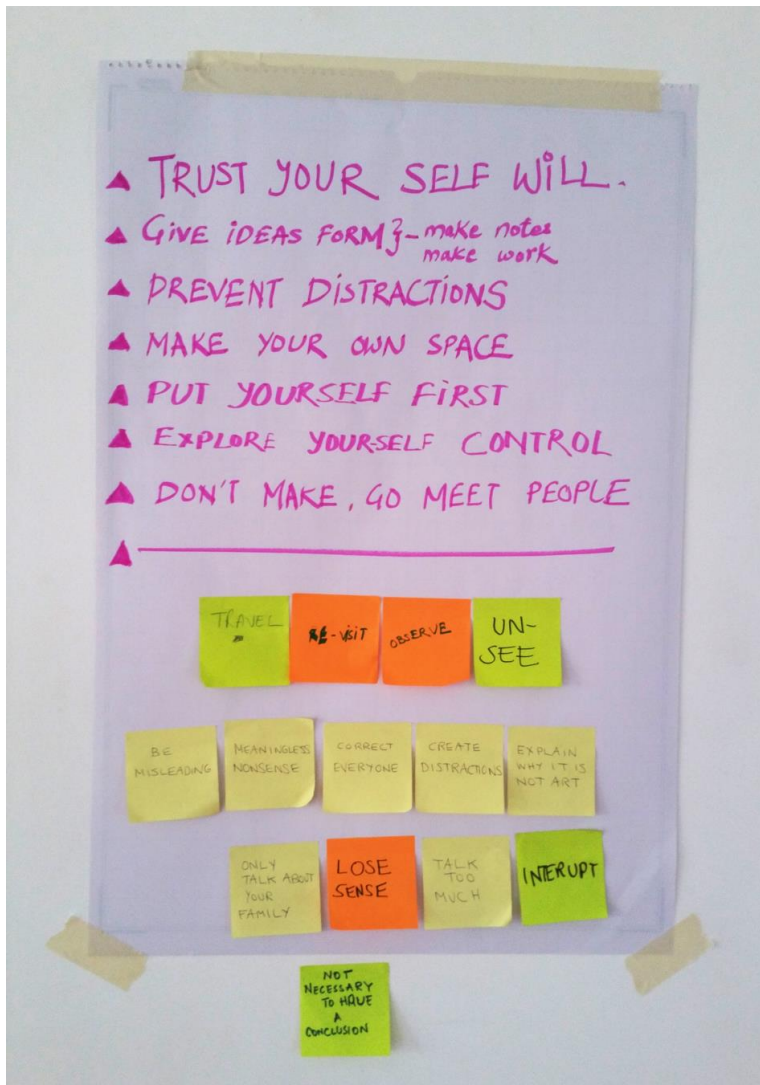 TRUST YOUR SELF WILL.
GIVE IDEAS FORM } - make notes
make work
PREVENT DISTRACTIONS
MAKE YOUR OWN SPACE
PUT YOURSELF FIRST
EXPLORE YOURSELF CONTROL
DON'T MAKE, GO MEET PEOPLE
TRAVEL
RE-VISIT
OBSERVE
UN-
SEE
BE
MISLEADING
MEANINGLESS
NONSENSE
CORRECT
EVERYONE
CREATE
DISTRACTIONS
EXPLAIN
WHY IT IS
NOT ART
ONLY
TALK ABOUT
YOUR
FAMILY
LOSE
SENSE
TALK
TOO
MUCH
INTERUPT
NOT
NECESSARY
TO HAVE
A
CONCLUSION